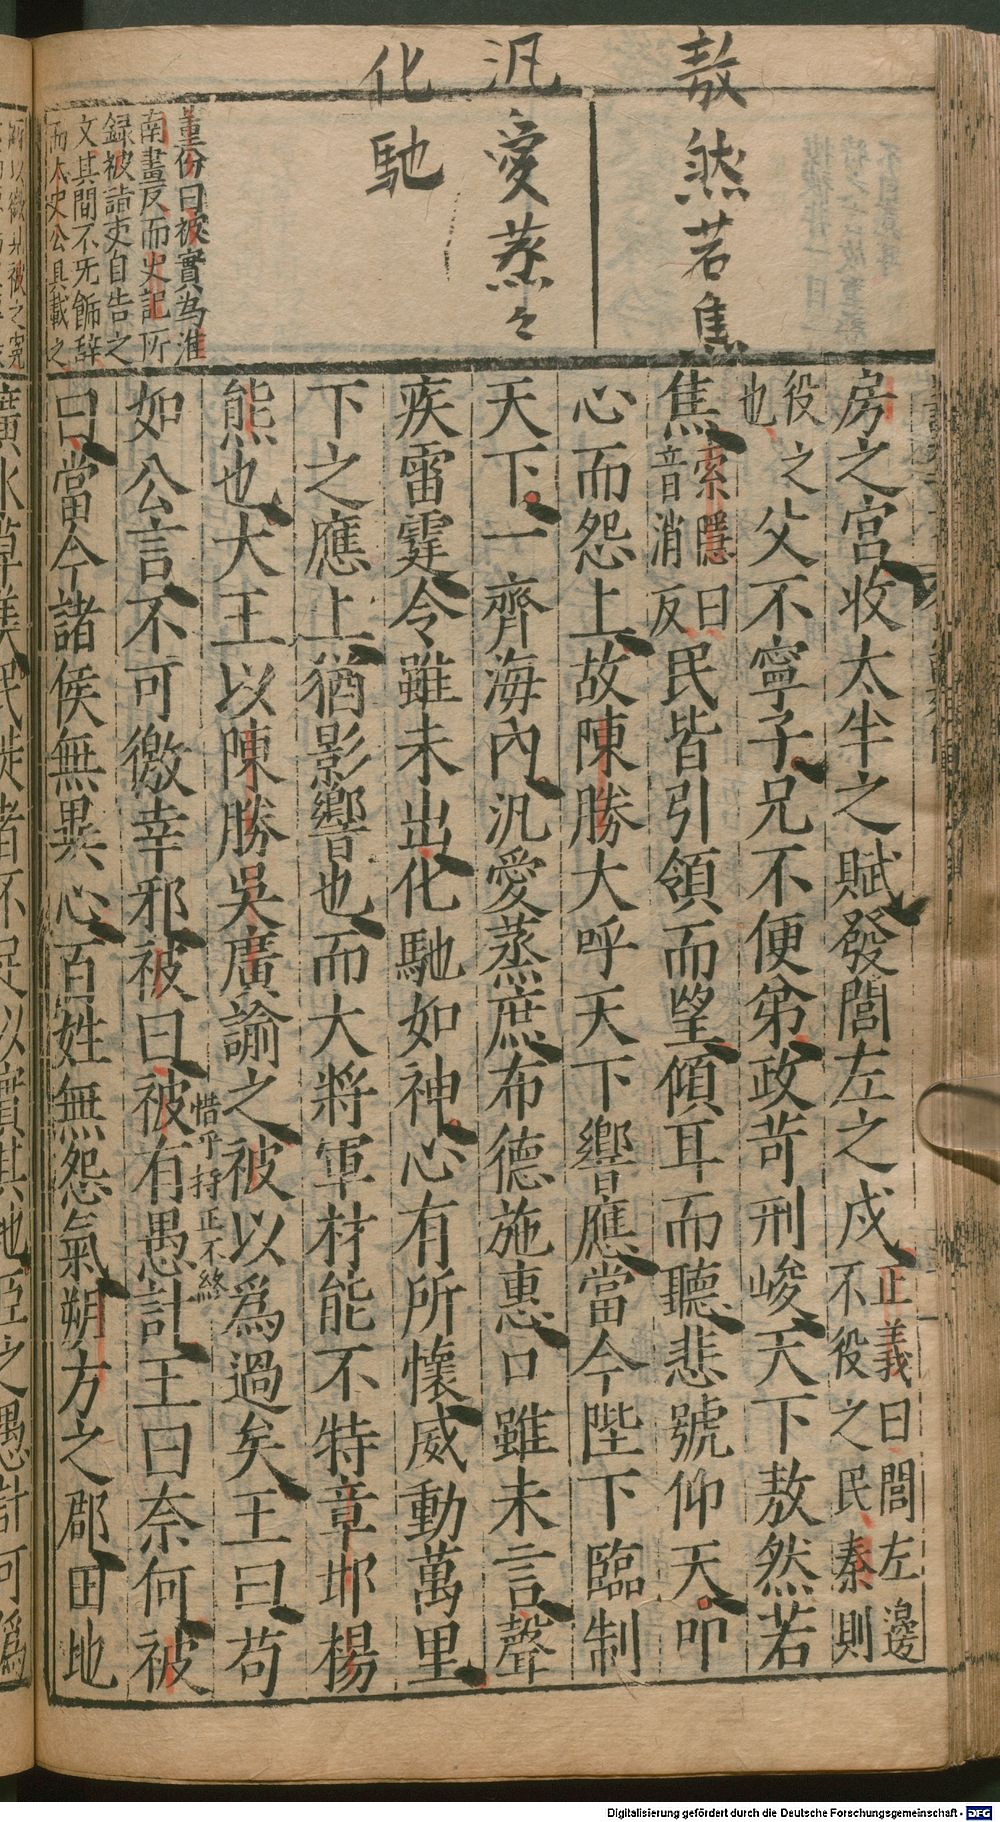 敖然若焦
汎愛蒸々
化馳
董份曰被實為淮
南畫反而史記所
録被詣吏自告之
文其間不无飾辞
而太史公具載之
房之宮收太半之賦發閭左之戍
正義曰閭左邊
不役之民秦則
役之
也
父不寧子兄不便弟政苛刑峻天下敖然若
焦
索隱曰
音消反
民皆引領而望傾耳而聽悲號仰天叩
心而怨上故陳勝大呼天下響應當今陛下臨制
天下一齊海內汎愛蒸庶布德施惠口雖未言聲
疾雷霆令雖未出化馳如神心有所懷威動萬里
下之應上猶影響也而大將軍材能不特章邯楊
熊也大王以陳勝吳廣諭之被以爲過矣王曰苟
惜乎持正不終
如公言不可徼幸邪被曰被有愚計王曰奈何被
曰當今諸侯無異心百姓無怨氣朔方之郡田地
廣水草美民徙者不足以實其地臣之愚計可爲
Digitalisierung gefördert durch die Deutsche Forschungsgemeinschaft - DFG